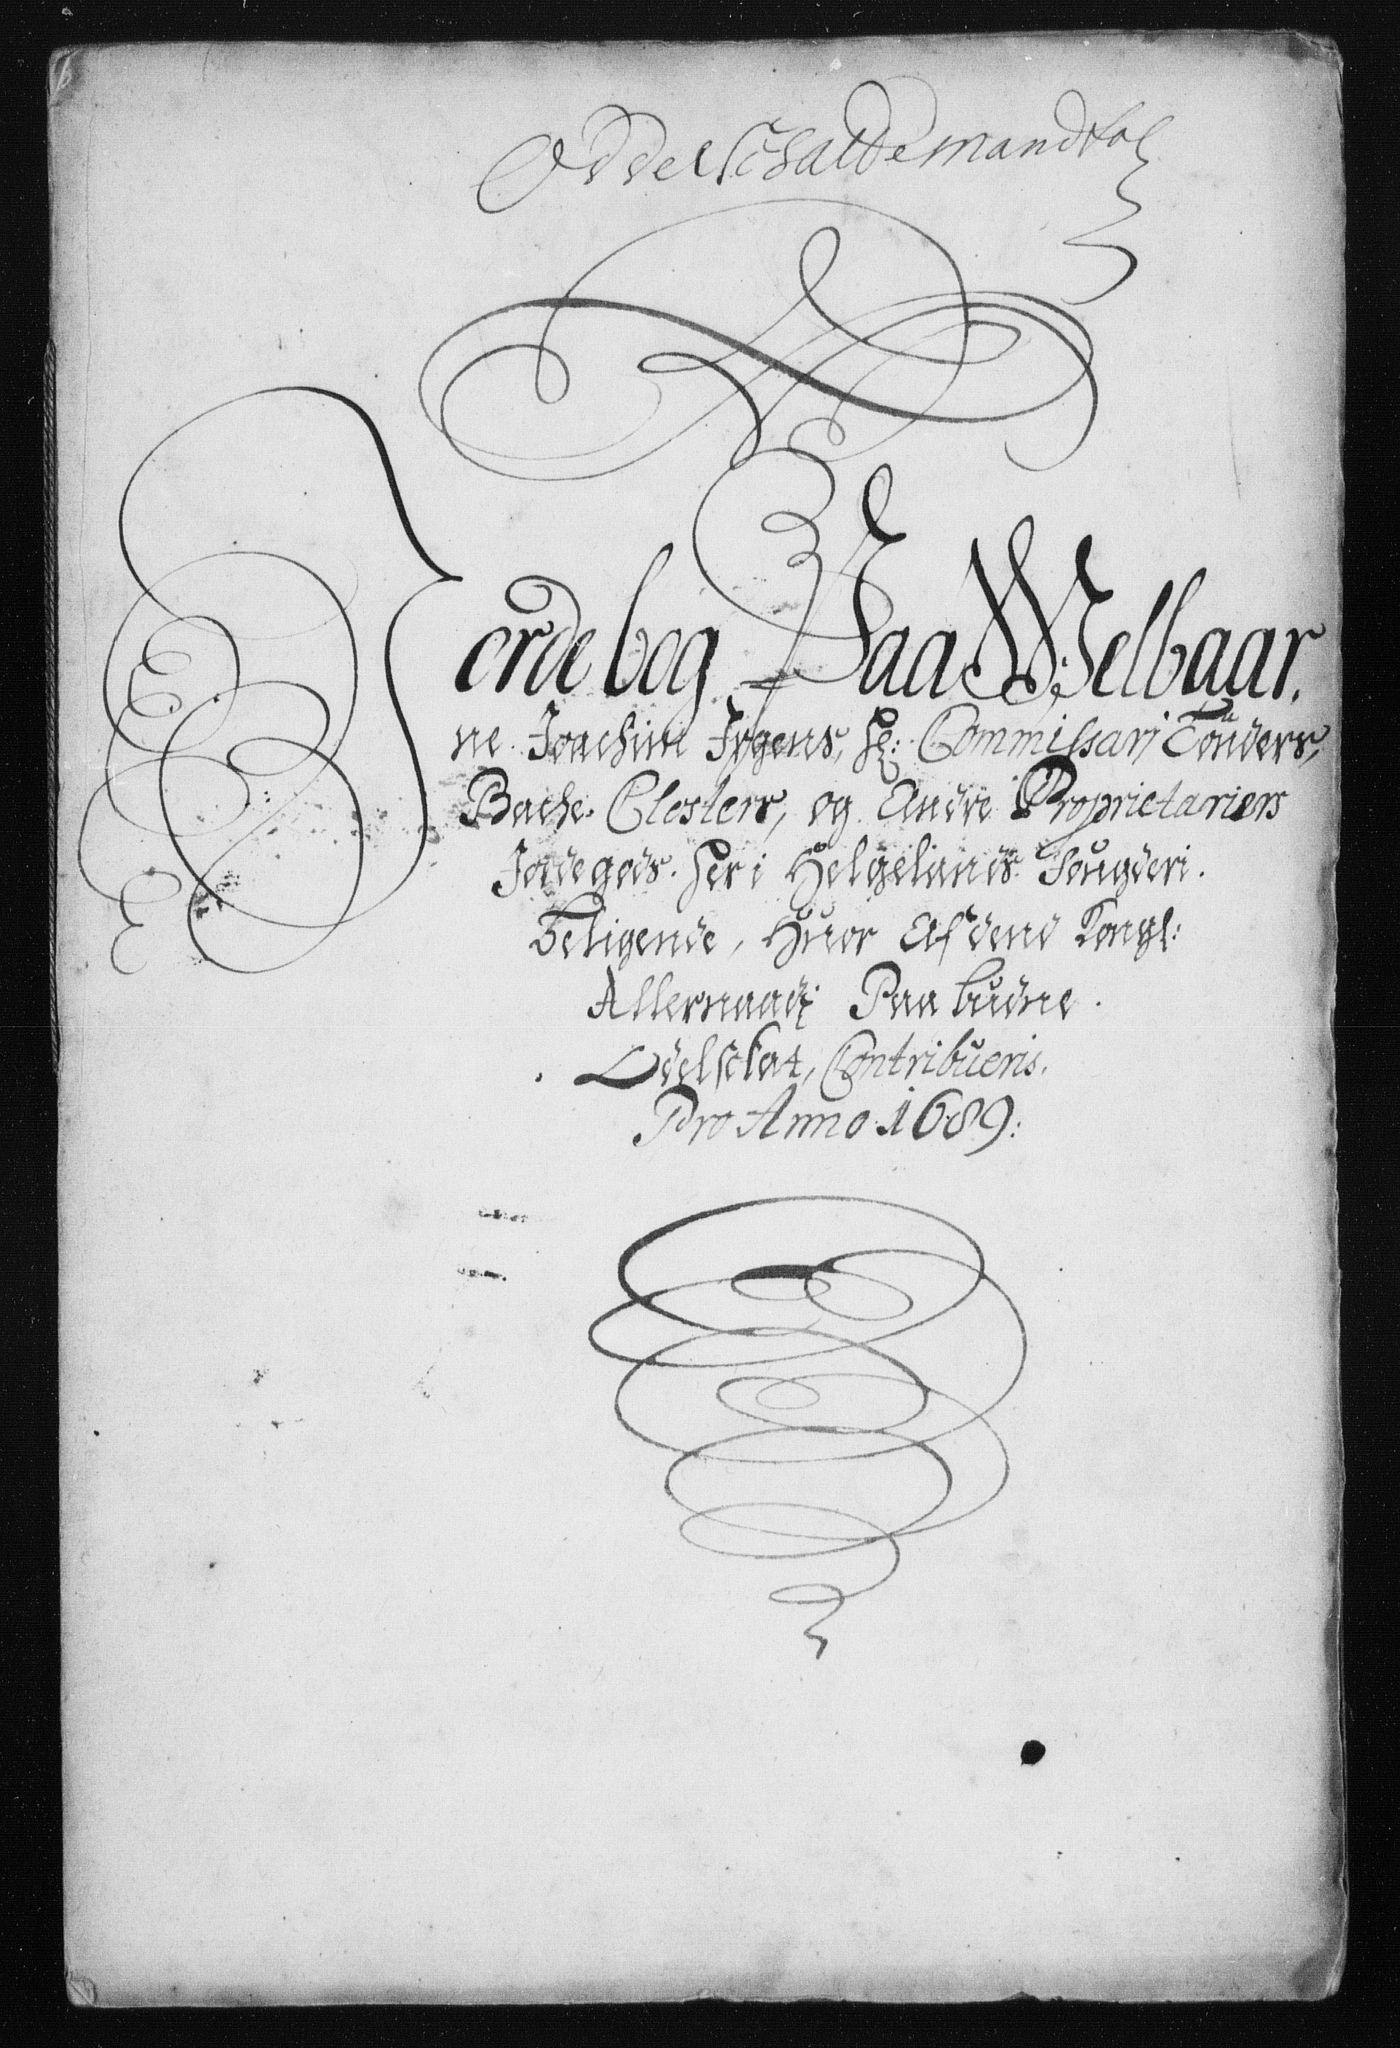 Oddelschattemandtal
Jordebog Paa Welbaar,
ne Joachim Irgens, Sl: Commissarj Tönders,
Bache Closters, og Andre Proprietariers
Jordegods her i Helgelands Fougderi
beligende, Huor Af dend Kongl:
Allernaadig Paabudne
Odelsckat, Contribueris.
Pro Anno 1689: